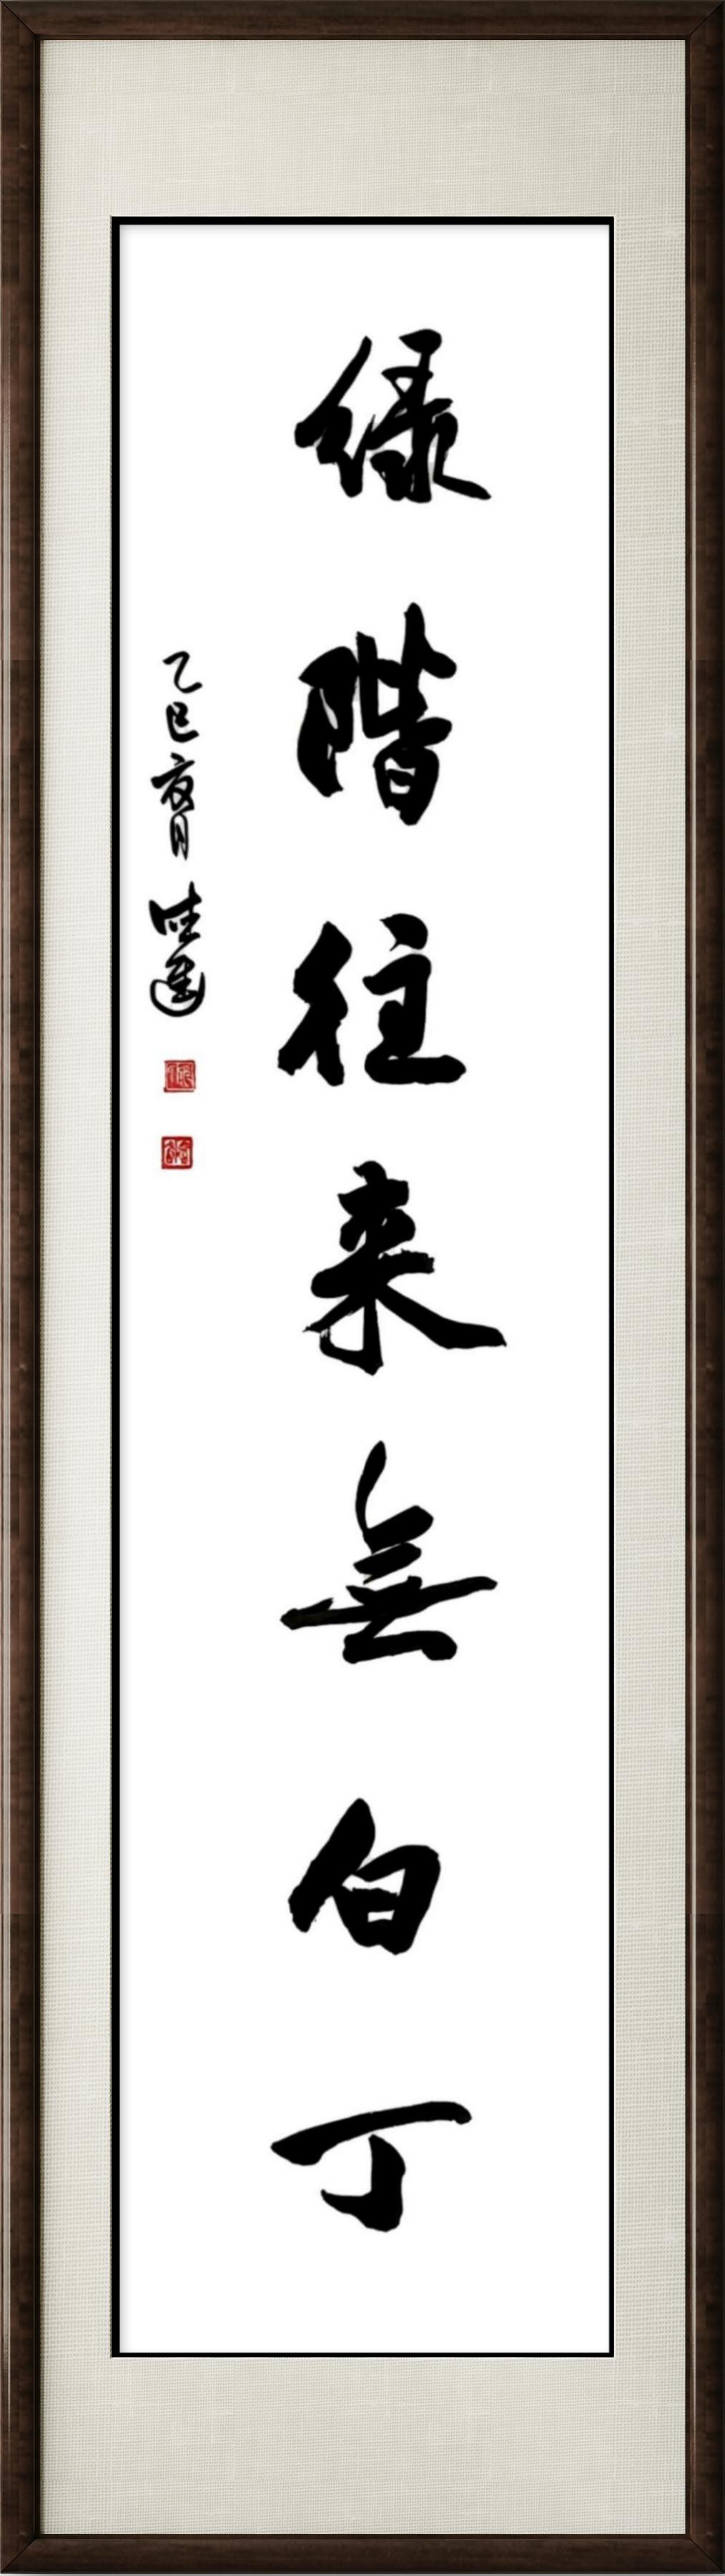 緑階往来無白丁
乙巳夏月